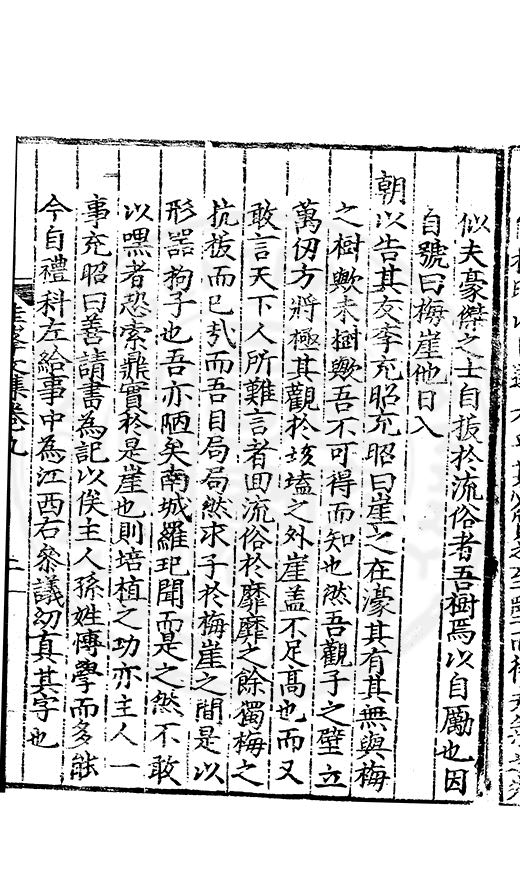 似夫豪傑之士自拔於流俗者吾樹焉以自勵也因
自號曰梅崖他日入
朝以告其友李充昭充昭曰崖之在濠其有其無與梅
之樹歟未樹歟吾不可得而知也然吾觀子之壁立
萬仞方將極其觀於垓之外崖蓋不足高也而又
敢言天下人所難言者回流俗於靡靡之餘獨梅之
抗拔而已哉而吾目局局然求子於梅崖之間是以
形器狗子也吾亦陋矣南城羅玘聞而是之然不敢
以嘿者恐索鼎實於是崖也則培植之功亦主人一
事充昭曰善請書為記以俟主人孫姓慱學而多能
今自禮科左給事中為江西右叅議幼真其字也
文集卷九